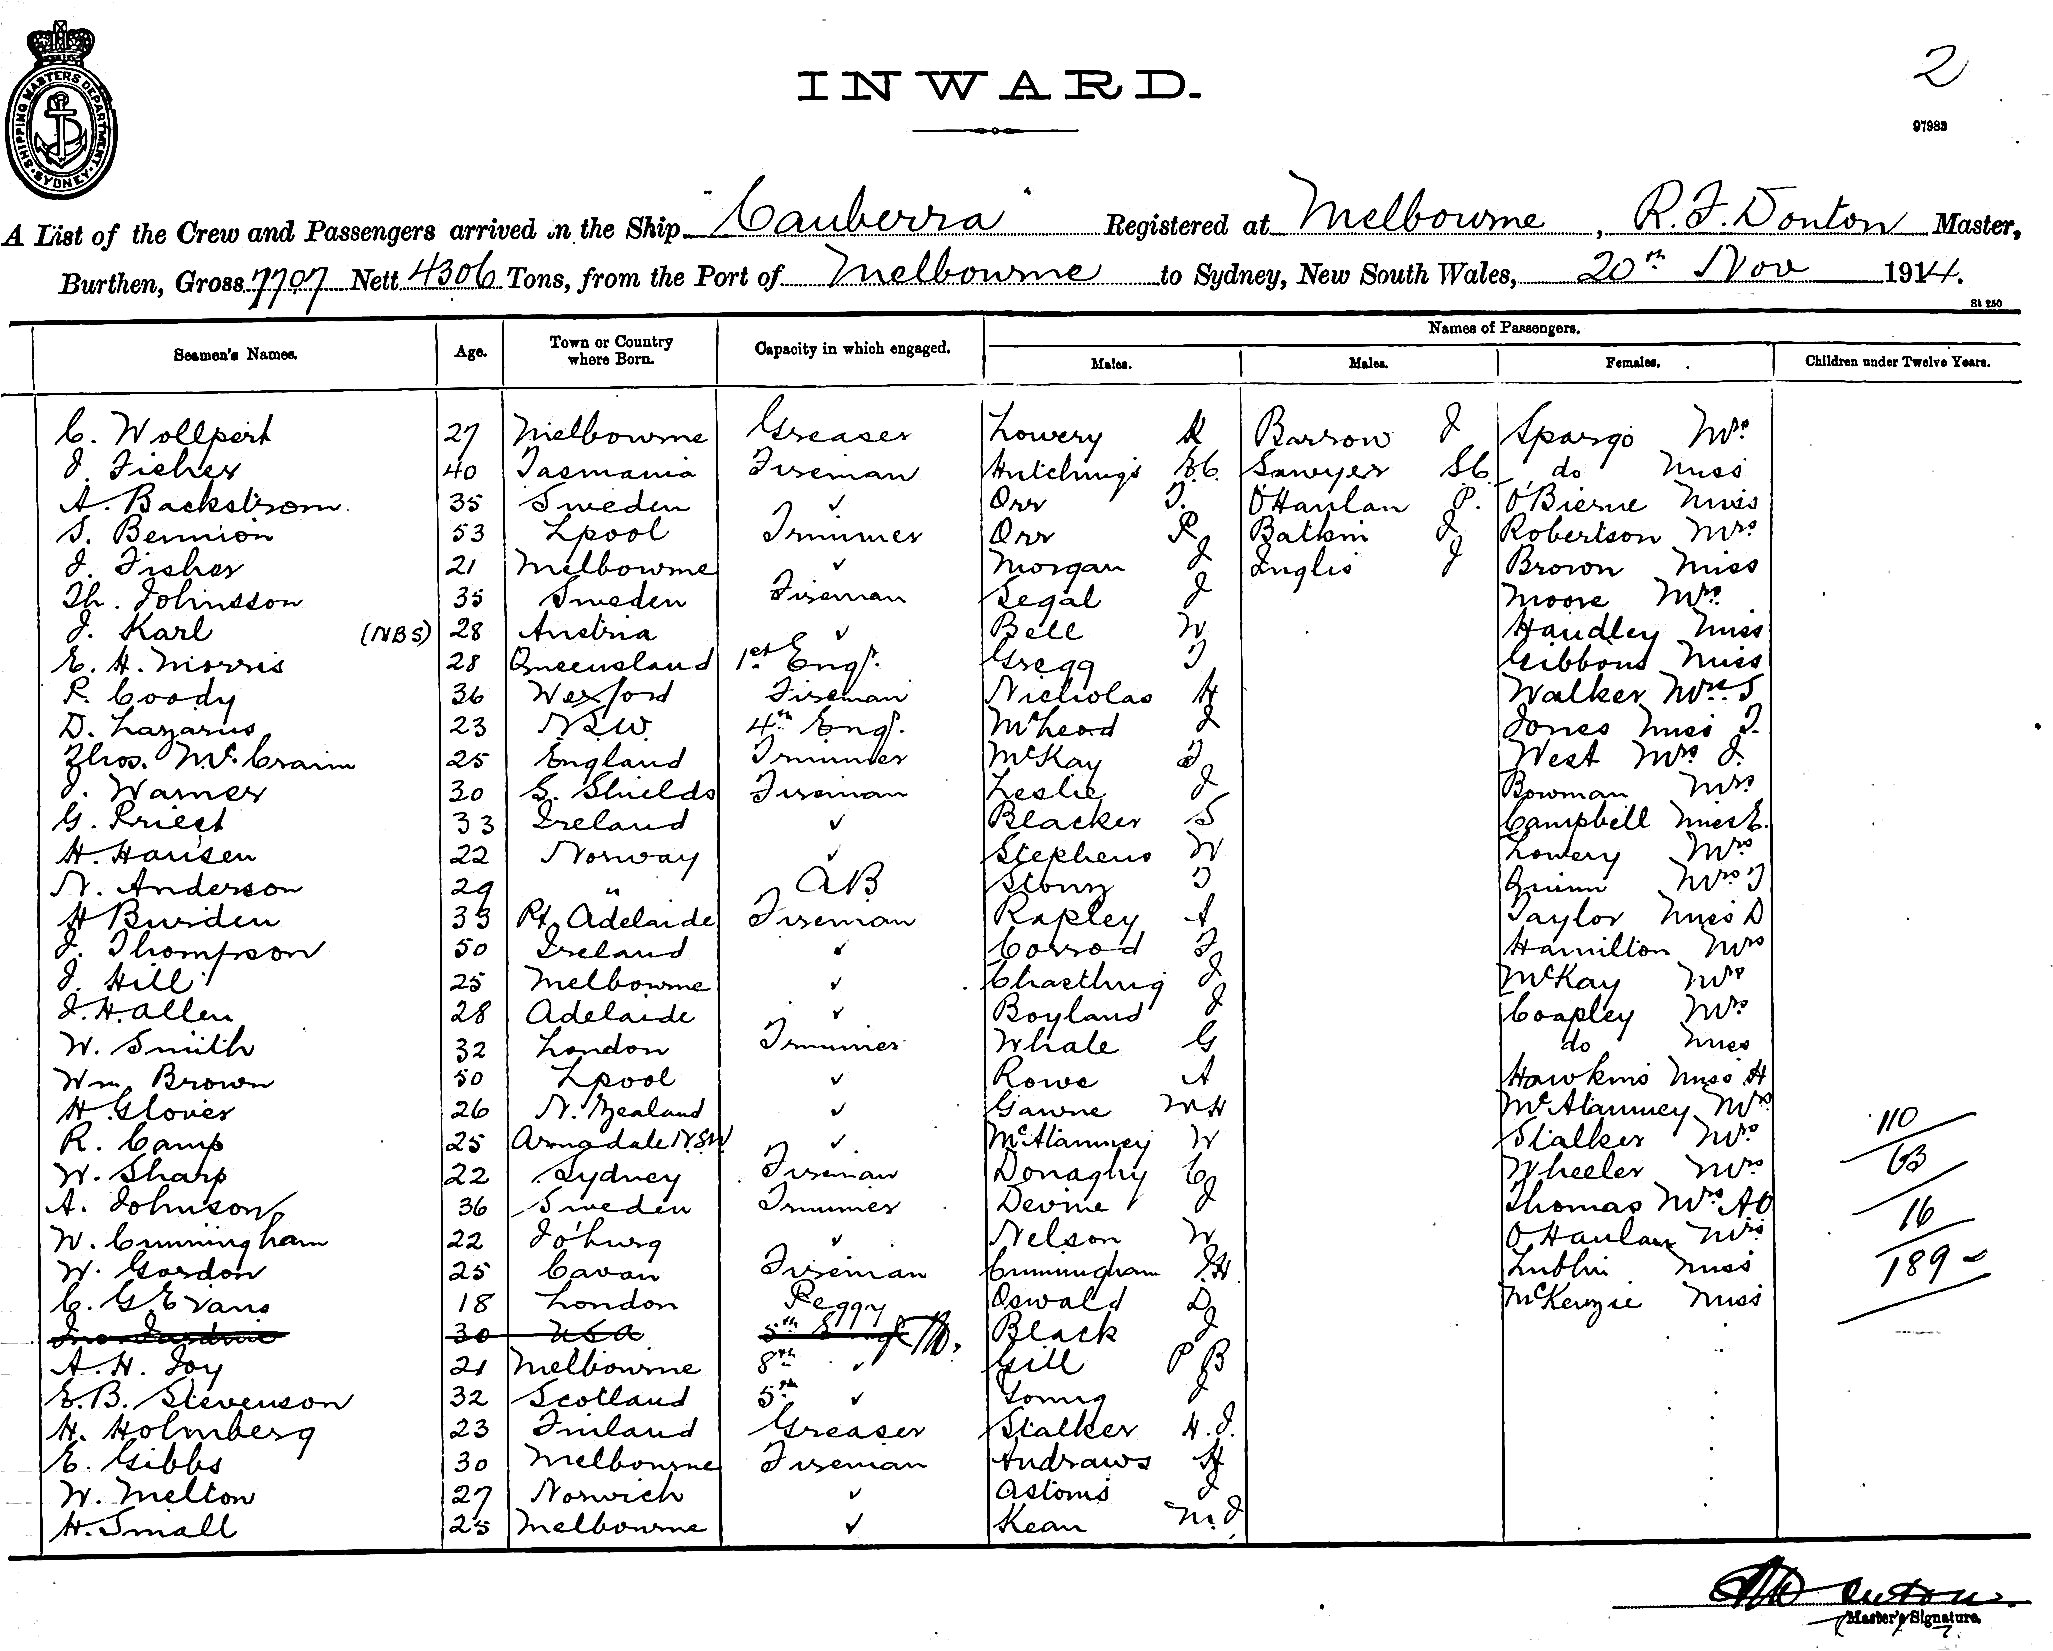 SHIPPING MASTERS DEPARTMENT. SYDNEY
2
INWARD.
97983
A List of the Crew and Passengers arrived in the Ship "Canberra" Registered at Melbourne, R. F. Donton Master,
Burthen, Gross 7707 Nett 4306 Tons, from the Port of Melbourne to Sydney, New South Wales, 20th Nov 1914.
St 250
Names of Passengers.
Seamen's Names. Age. Town or Country where Born. Capacity in which engaged. Males. Males. Females. Children under Twelve Years.
C. Wollpert 27 Melbourne Greaser Lowery R Barrow J Spargo Mrs
J. Fisher 40 Tasmania Fireman Hutchings Sawyer do Miss
A. Backstrom 35 Sweden ✓ Orr T. O'Hanlan P. O'Bierne Miss
S. Bennion 53 Lpool Trimmer Orr R Batkin J Robertson Mrs
J. Fisher 21 Melbourne ✓ Morgan J Inglis J Brown Miss
Th. Johnsson 35 Sweden Fireman Segal J Moore Mrs
J. Karl (NBS) 28 Austria ✓ Bell W Handley Miss
E. H. Morris 28 Queensland 1st Engr. Gregg T Gibbons Miss
P. Coody 36 Wexford Fireman Nicholas H Walker Mrs S
D. Lazarus 23 N.S.W. 4th Engr. McLeod J Jones Miss T.
Thos. McCraim 25 England Trimmer McKay T West Mrs J.
J. Warner 30 S. Shields Fireman Leslie J Bowman Mrs
G. Priest 33 Ireland ✓ Blacker S Campbell Miss E.
H. Hansen 22 Norway ✓ Stephens W Lowery Mrs
N. Anderson 29 " AB T Quinn Mrs T
H Burden 33 Pt. Adelaide Fireman Rapley A Taylor Miss D
J. Thompson 50 Ireland ✓ Corrod T Hamilton Mrs
J. Hill 25 Melbourne ✓ J McKay Mrs
J. H. Allen 28 Adelaide ✓ Boyland J Coapley Mrs
W. Smith 32 London Trimmer Whale G do Miss
Wm Brown 50 Lpool ✓ Rowe A Hawkins Miss H
H Glover 26 N. Zealand ✓ Gawne WH McAlamney Mrs
110
R. Camp 25 Armadale N.S.W ✓ McAlamney W Stalker Mrs
63
W. Sharp 22 Sydney Fireman Donaghy C Wheeler Mrs
A. Johnson 36 Sweden Trimmer Devine J Thomas Mrs AO
16
W. Cunningham 22 Jo'burg ✓ Nelson W O'Hanlan Mrs
W. Gordon 25 Cavan Fireman Cunningham J.H. Lublin Miss
189
C. G. Evans 18 London Peggy Oswald D McKenzie Miss
30 USA 5th Black J
A. H. Joy 21 Melbourne 8th ✓ Gill P B
E. B. Stevenson 32 Scotland 5th ✓ Young J
H. Holmberg 23 Finland Greaser Stalker H. J.
E. Gibbs 30 Melbourne Fireman Andraws H
W. Melton 27 Norwich ✓ Astoms J
H. Small 25 Melbourne ✓ Kean M. J
Master's Signature.